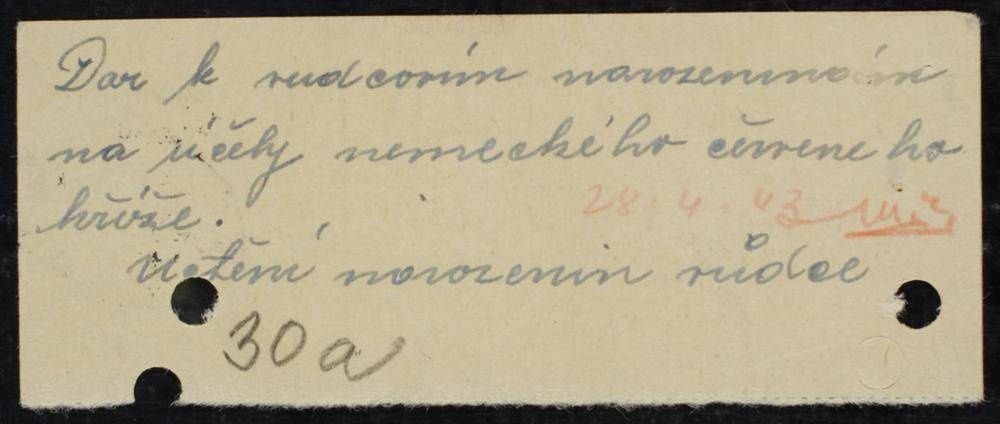 Dar k vudcovím narozeninám
na účely nemeckého červeneho
kříže.
28. 4. 43
Uctění narozenin vůdce
30 a